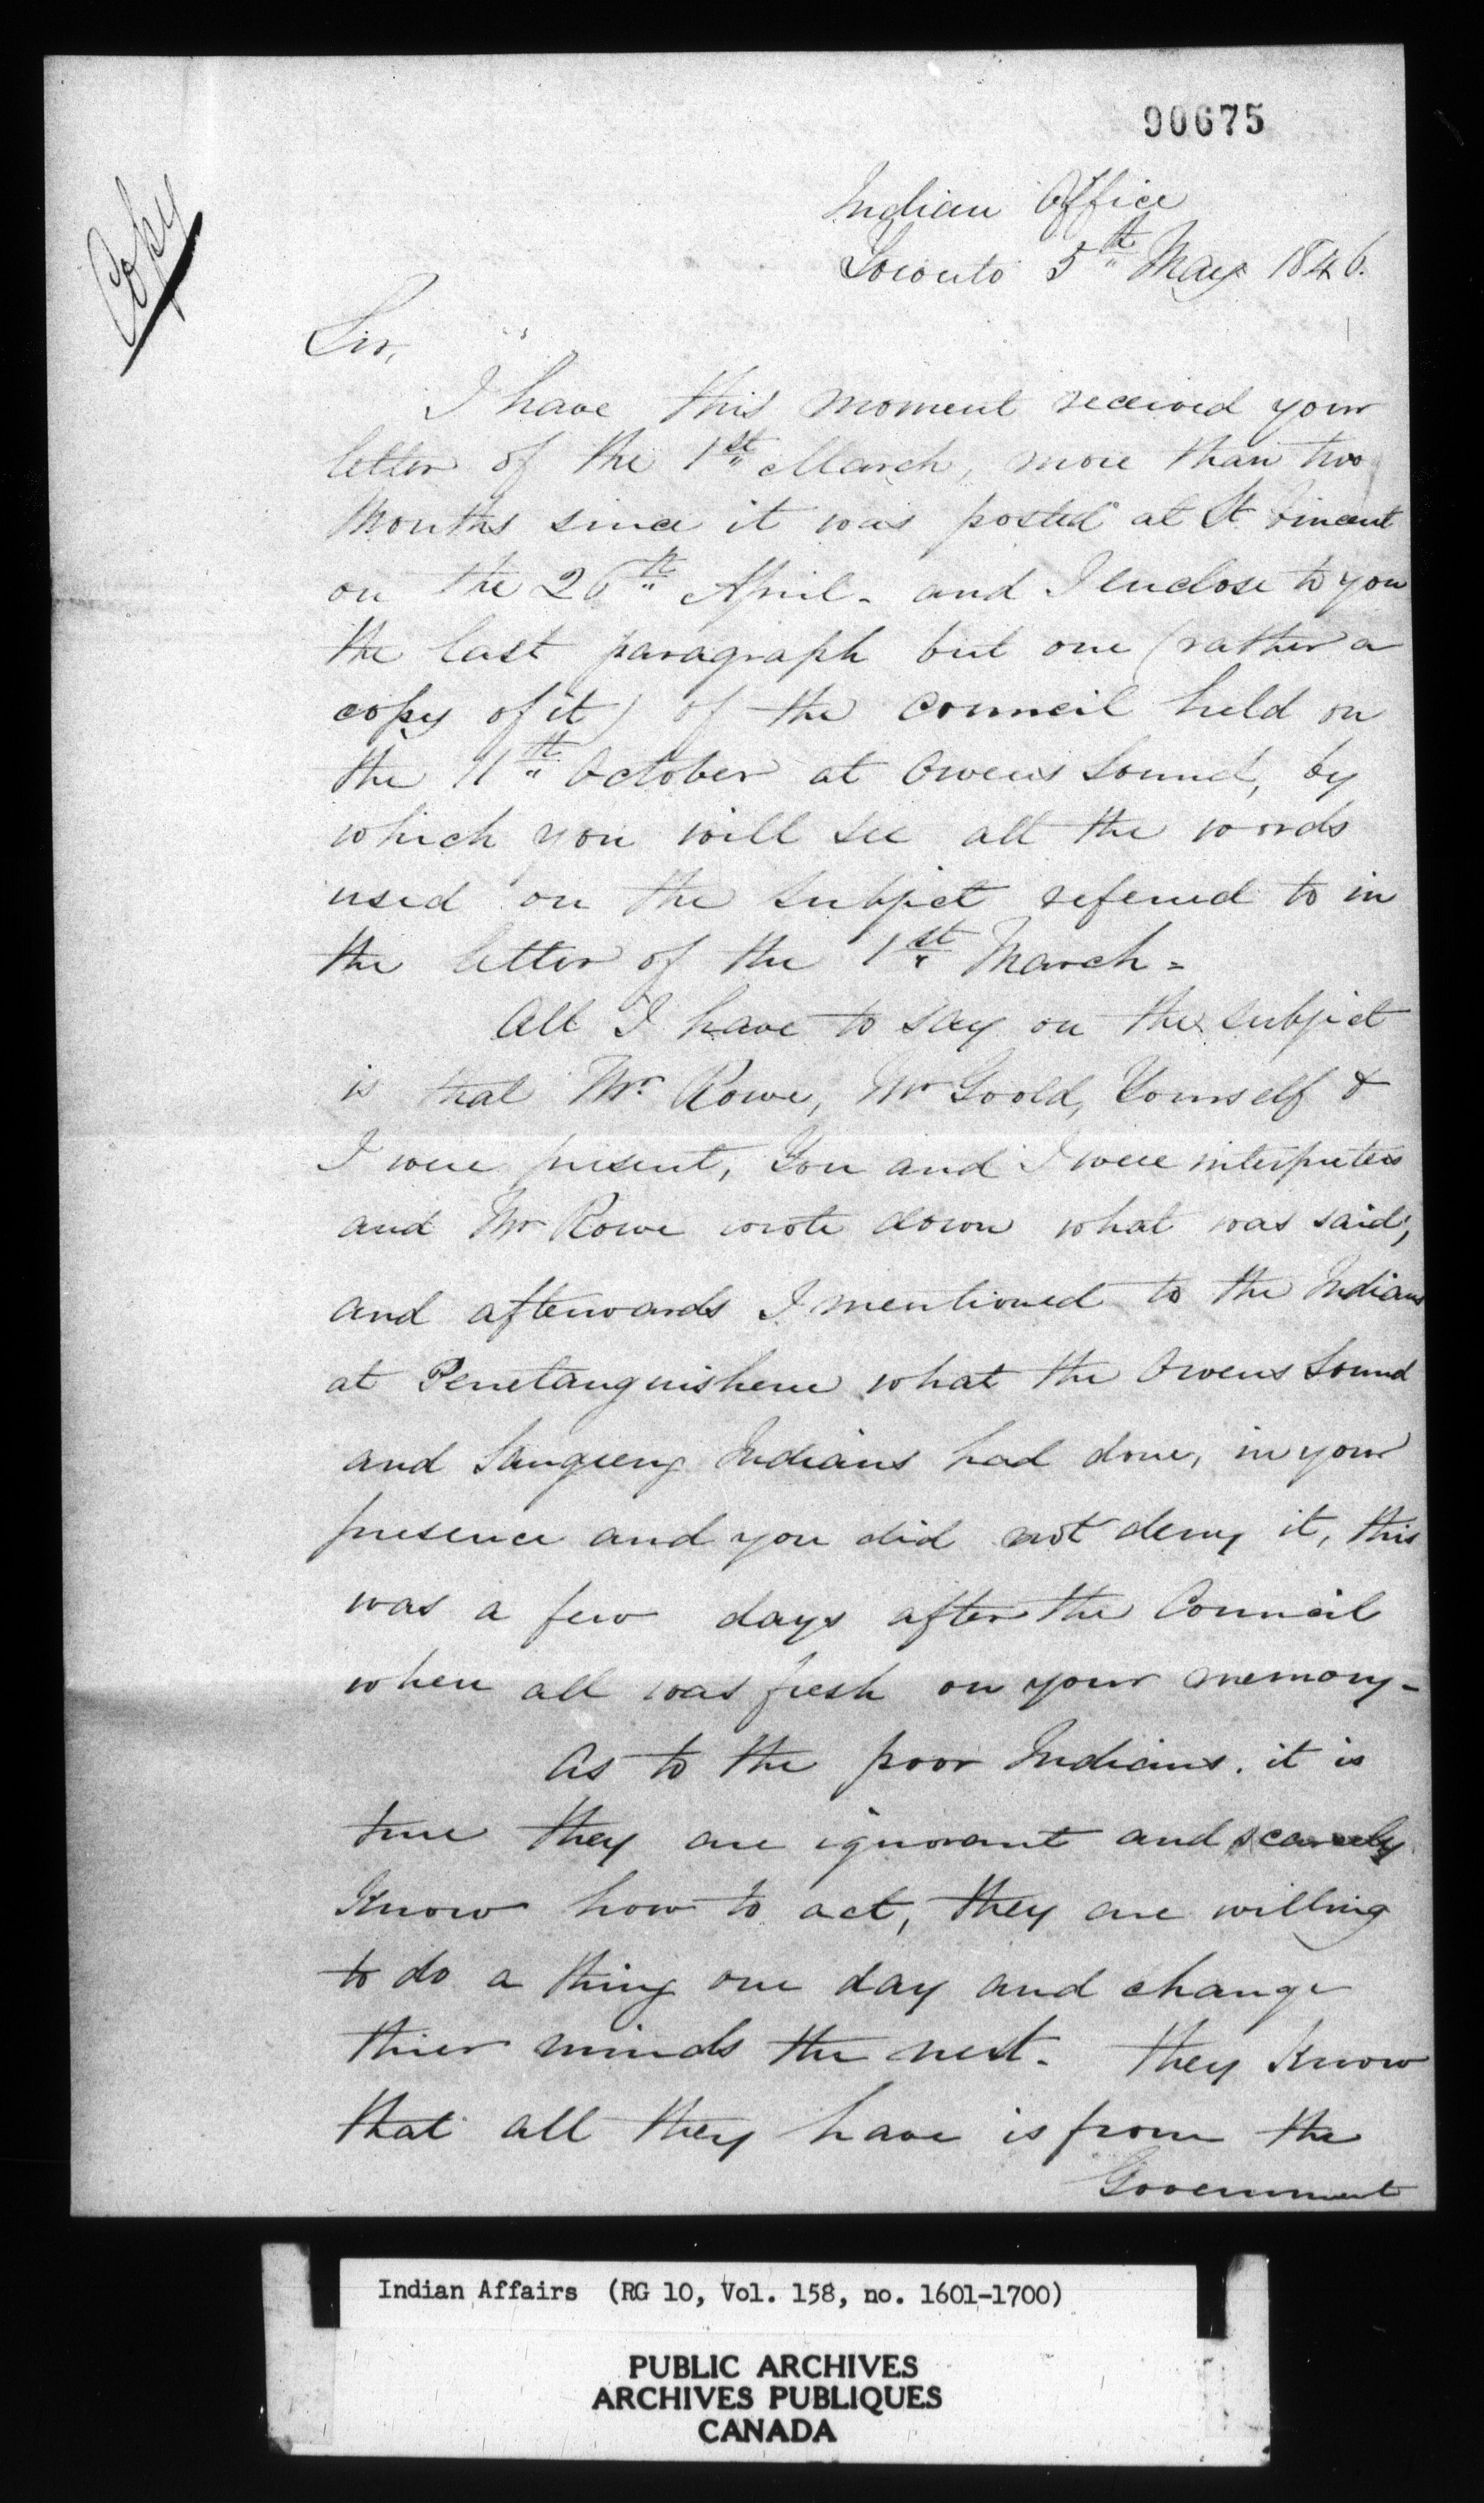 90675
Copy
Indian Office
Toronto 5th May 1846.
Sir,
I have this moment received your
letter of the 1st March, more than two
Months since it was posted at St Vincent
on the 26th April - and I enclose to you
the last paragraph but one (rather a
copy of it) of the Council held on
the 11th October at Owens Sound, by
which you will see all the words
used on the subject referred to in
the letter of the 1st March =
All I have to say on the subject
is that Mr. Rowe, Mr Goold, Yourself &
I were present, You and I were interpreters
and Mr Rowe wrote down what was said,
and afterwards I mentioned to the Indians
at Penetanguishene what the Owens Sound
and Saugeeng Indians had done, in your
presence and you did not deny it, this
was a few days after the Council
when all was fresh on your memory -
As to the poor Indians, it is
true they are ignorant and scarcely
Know how to act, they are willing
to do a thing one day and change
thier minds the next. They Know
that all they have is from the
Government
Indian Affairs (RG 10, Vol. 158, no. 1601-1700)
PUBLIC ARCHIVES
ARCHIVES PUBLIQUES
CANADA